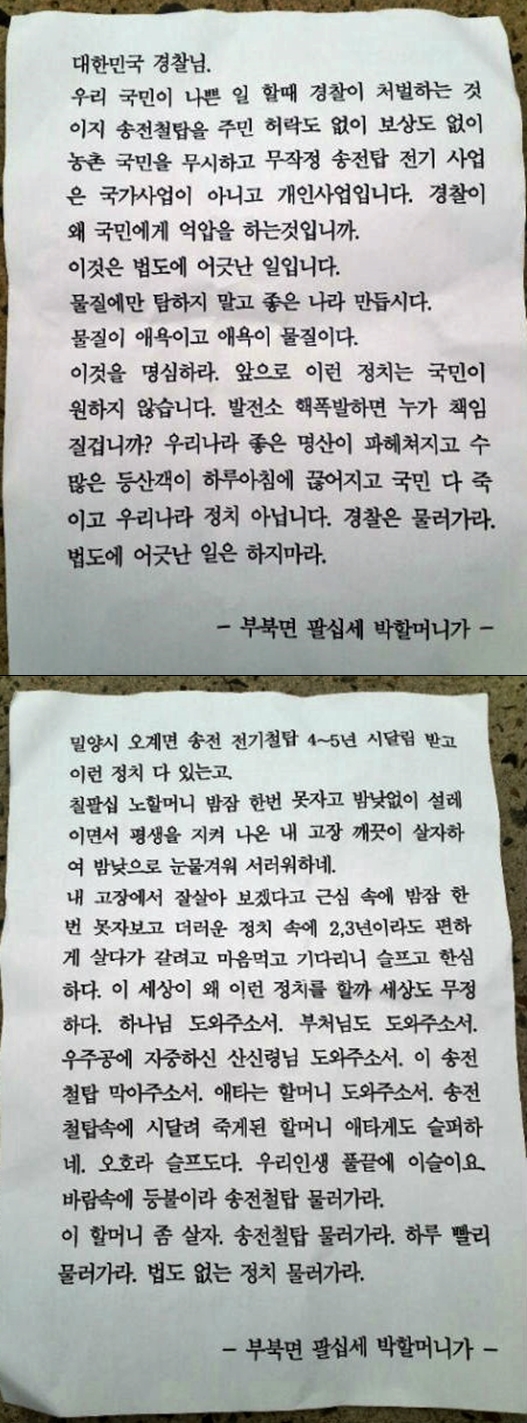 대한민국 경찰님.
우리 국민이 나쁜 일 할때 경찰이 처벌하는 것
이지 송전철탑을 주민 허락도 없이 보상도 없이
농촌 국민을 무시하고 무작정 송전탑 전기 사업
은 국가사업이 아니고 개인사업입니다. 경찰이
왜 국민에게 억압을 하는것입니까.
이것은 법도에 어긋난 일입니다.
물질에만 탐하지 말고 좋은 나라 만듭시다.
물질이 애욕이고 애욕이 물질이다.
이것을 명심하라. 앞으로 이런 정치는 국민이
원하지 않습니다. 발전소 핵폭발하면 누가 책임
질겁니까? 우리나라 좋은 명산이 파헤쳐지고 수
많은 등산객이 하루아침에 끊어지고 국민 다 죽
이고 우리나라 정치 아닙니다. 경찰은 물러가라.
법도에 어긋난 일은 하지마라.
- 부북면 팔십세 박할머니가 -
밀양시 오계면 송전 전기철탑 4~5년 시달림 받고
이런 정치 다 있는고.
칠팔십 노할머니 밤잠 한번 못자고 밤낮없이 설레
이면서 평생을 지켜 나온 내 고장 깨끗이 살자하
여 밤낮으로 눈물겨워 서러워하네.
내 고장에서 잘살아 보겠다고 근심 속에 밤잠 한
번 못자보고 더러운 정치 속에 2,3년이라도 편하
게 살다가 갈려고 마음먹고 기다리니 슬프고 한심
하다. 이 세상이 왜 이런 정치를 할까 세상도 무정
하다. 하나님 도와주소서. 부처님도 도와주소서.
우주공에 자중하신 산신령님 도와주소서. 이 송전
철탑 막아주소서. 애타는 할머니 도와주소서. 송전
철탑속에 시달려 죽게된 할머니 애타게도 슬퍼하
네. 오호라 슬프도다. 우리인생 풀끝에 이슬이요.
바람속에 등불이라 송전철탑 물러가라.
이 할머니 좀 살자. 송전철탑 물러가라. 하루 빨리
물러가라. 법도 없는 정치 물러가라.
- 부북면 팔십세 박할머니가 -